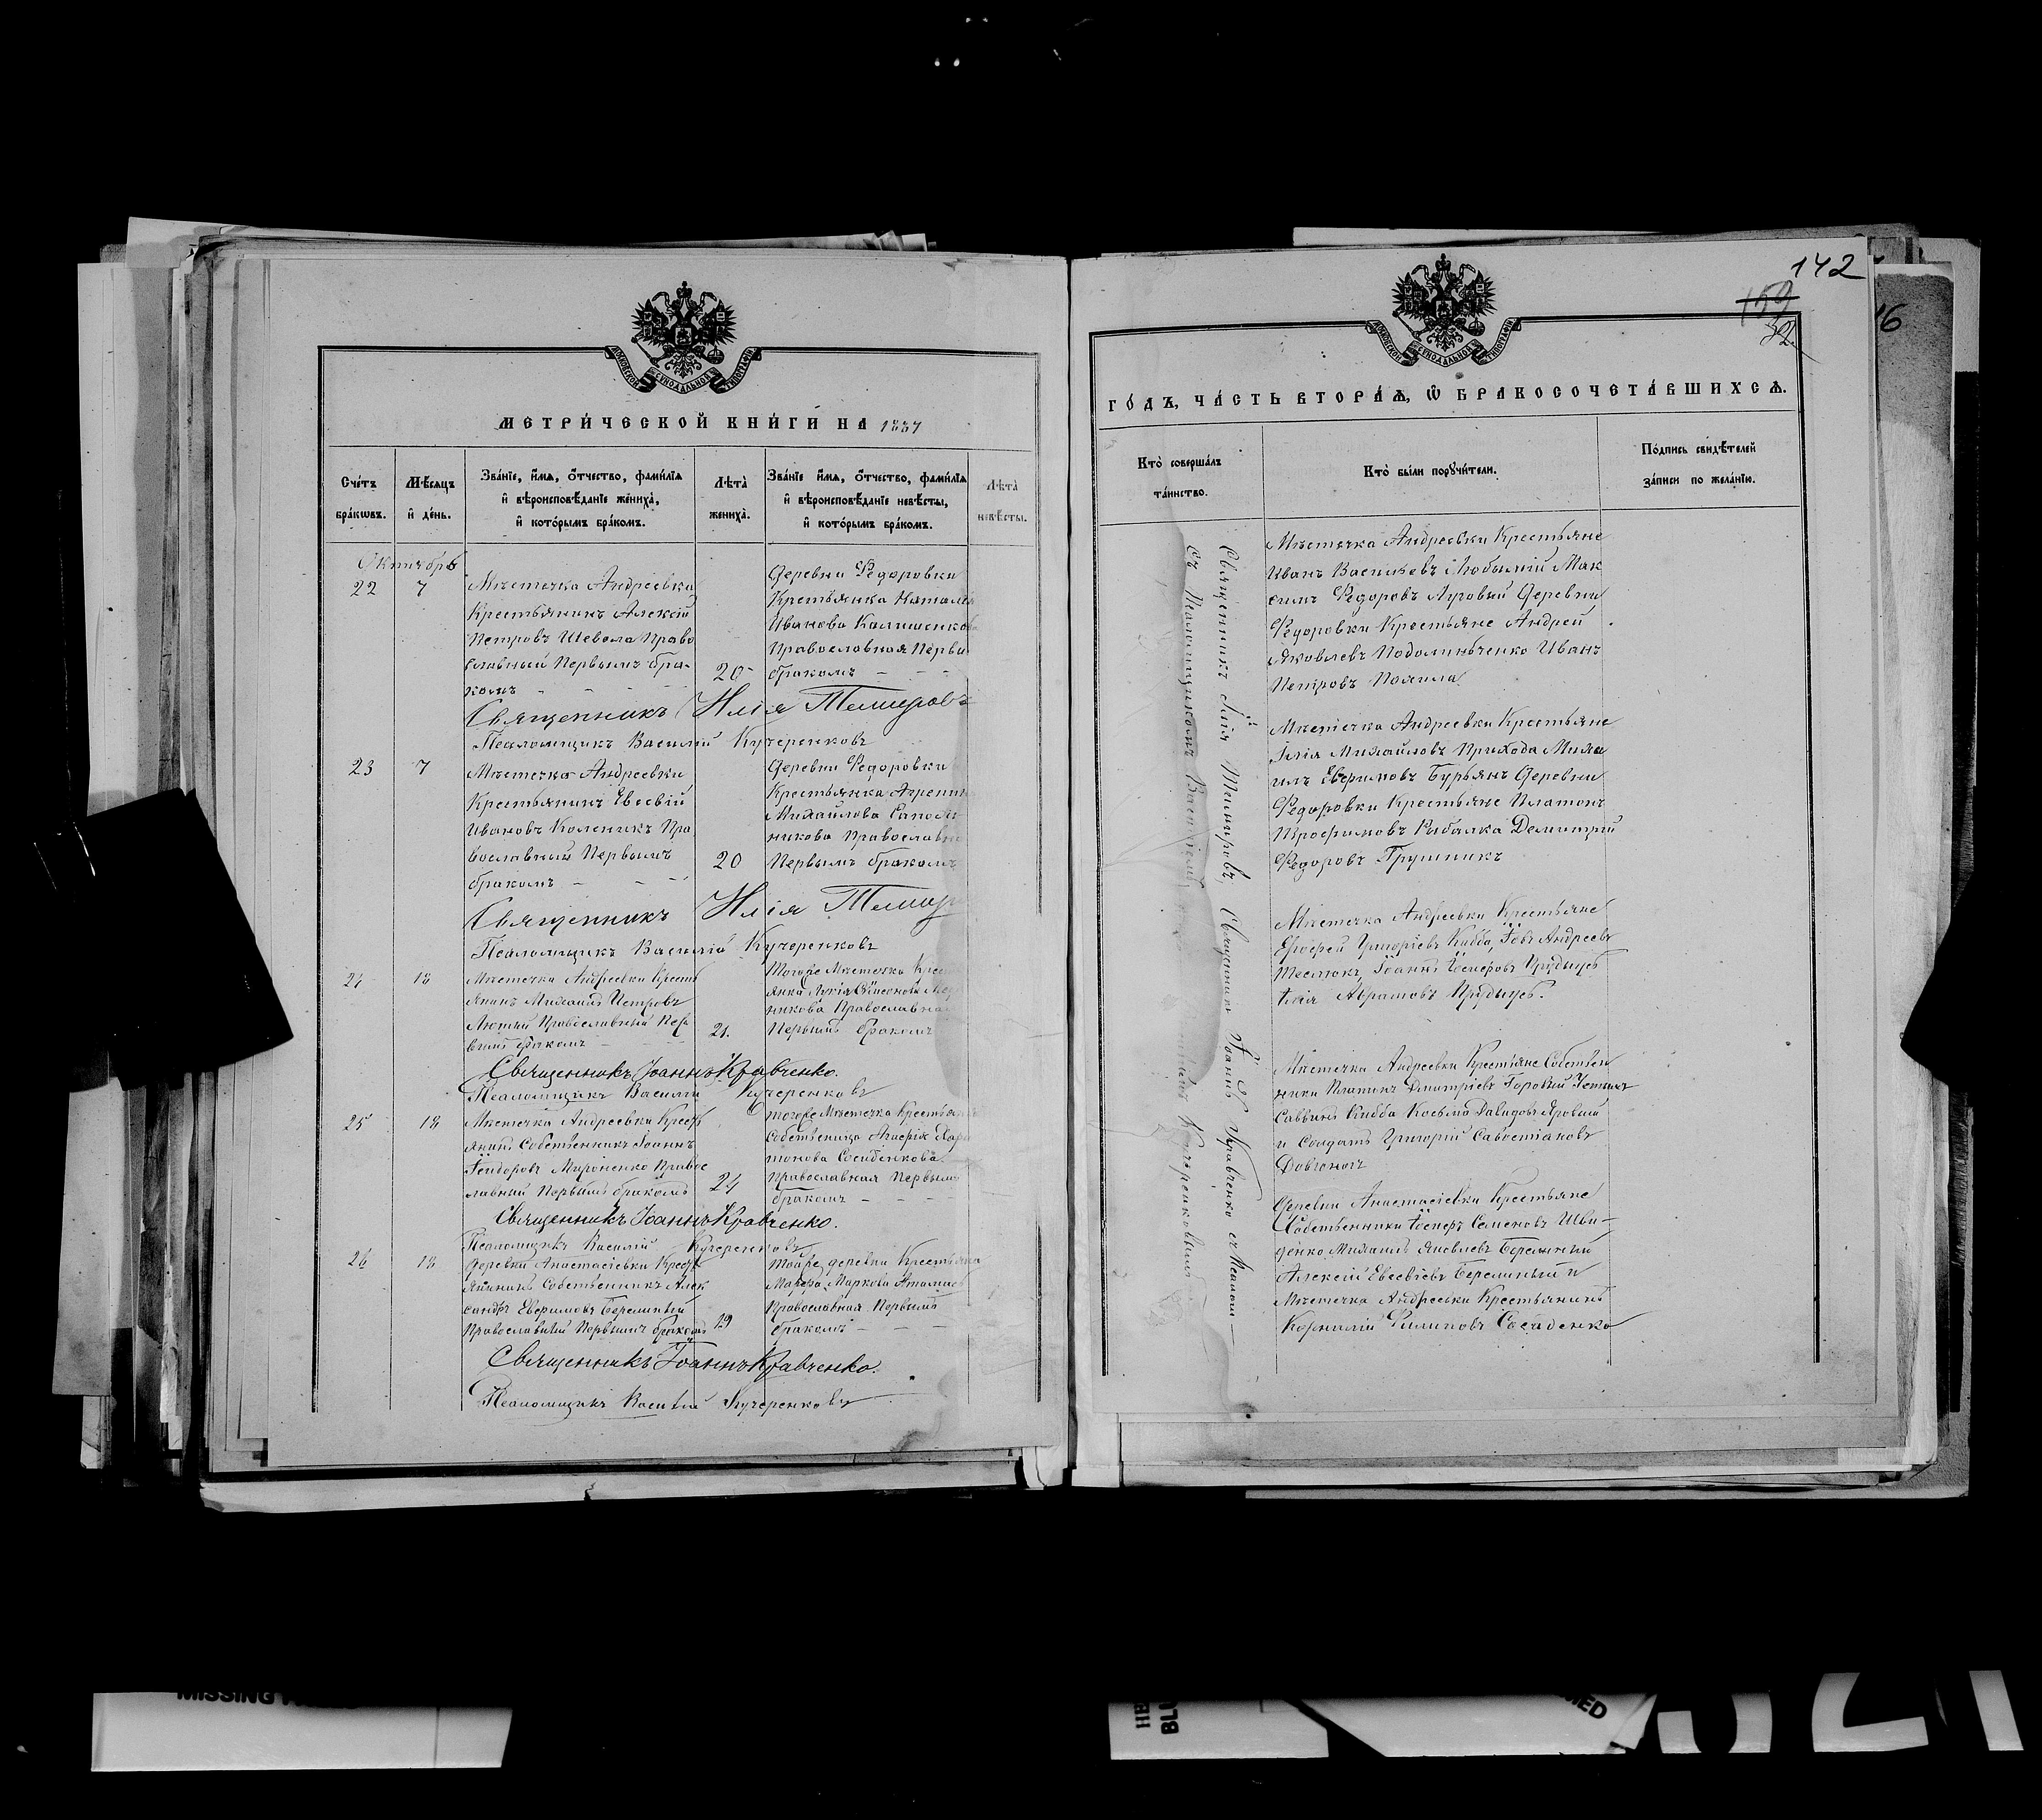 142
159
32
16
МОСКОВСКОЙ СѴНОДАЛЬНОЙ ТИПОГРАФІИ
МЕТРИ́ЧЕСКОЙ КНИ́ГИ НА 1887
Сче́тъ бра́кѡвъ.
Мѣ́сяцъ и҆ де́нь.
Зва́нїе, и҆́мѧ, ѻ҆́тчество, фами́лїѧ и҆ вѣроисповѣ́данїе жениха̀, и҆ кото́рымъ бра́комъ.
Лѣ́та̀ жениха̀.
Зва́нїе и҆́мѧ, ѻ҆́тчество, фами́лїѧ и҆ вѣроисповѣ́данїе невѣ́сты, и҆ кото́рымъ бра́комъ.
Лѣ́та̀ невѣ́сты.
Октябрь
22
7
Мѣстечка Андреевки
Крестьянинъ Алексій
Петровъ Шевела Право
славный Первымъ бра-
комъ
20
Деревни Федоровки
Крестьянка Наталія
Иванова Калишенкова
Православная Первы
бракомъ
Священникъ Илія Темировъ
Псаломщикъ Василій Кучеренковъ
23
7
Мѣстечка Андреевки
Крестьянинъ Евсевій
Ивановъ Коленикъ Пра
вославный Первымъ
бракомъ
20
Деревни Федоровки
Крестьянка Агрепин
Михайлова Сапож
никова Православн
Первымъ бракомъ
Священникъ Илія Темир
Псаломщикъ Василій Кучеренковъ
24
18
Мѣстечка Андреевки Крестъ
янинъ Михаилъ Петровъ
Лютый Православный Пер
вымъ бракомъ
21.
Тогоже Мѣстечка Крес
янка
никова Православная
Первымъ бракомъ
Священникъ Іоаннъ Кравченко.
Псаломщикъ Василій Кучеренковъ
25
18
Мѣстечка Андреевки Крестъ
янинъ Собственникъ Іоаннъ
Ісидоровъ Мироненко Правос
лавный Первымъ бракомъ
24
тогоже Мѣстечка Крестьян
Собственица Агафія Хари
тонова
Православная Первымъ
бракомъ
Священникъ Іоаннъ Кравченко.
Псаломщикъ Василій Кучеренковъ
26
18
Деревни Анастасіевки Крестъ
янинъ Собственникъ Алек
сандръ Евфимовъ Береминый
Православный Первымъ бракомъ
19
Тояже деревни Крестьянка
Марфа Маркова
Православная Первымъ
бракомъ
Священникъ Іоаннъ Кравченко.
Псаломщикъ Василій Кучеренковъ
ГО́ДЪ, ЧА́СТЬ ВТОРА́Ѧ, Ѽ БРАКОСОЧЕТА́ВШИХСѦ.
Кто̀ соверша́лъ та́инство.
Кто̀ бы́ли порꙋчи́тели.
По́дпись свидѣ́телей за́писи по жела́нїю.
Священникъ Илія Темировъ, Священникъ Іоаннъ Кравченко съ Псалом-
съ Псаломщикомъ Василіемъ
Кучеренковымъ
Мѣстечка Андреевки Крестьяне
Иванъ Васильевъ Любымый Мак
симъ Федоровъ Луговый Деревни
Федоровки Крестьяне Андрей
Яковлевъ Подолиньченко Иванъ
Петровъ Помила
Мѣстечка Андреевки Крестьяне
Ілія Михайловъ Прихода Миха
илъ Евфимовъ Бурьянъ Деревни
Федоровки Крестьяне Платонъ
Трофимовъ Рыбалка Димитрій
Федоровъ Грушникъ
Мѣстечка Андреевки Крестьяне
Ерофей Григоріевъ Кибба, Іовъ Андреевъ
Теслюкъ, Іоаннъ Іосифовъ Прудыусъ
Ілія Абрамовъ Прудыусъ.
Мѣстечка Андреевки Крестьяне Собствен
ники Платонъ Дмитріевъ Горовый Устинъ
Саввинъ Кибба Косьма Давидовъ Яровый
и Солдатъ Григорій Савостіановъ
Довгоногъ
Деревни Анастасіевки Крестьяне
Собственники Іосифъ Семеновъ Шви-
денко Михаилъ Яковлевъ Береминый
Алексій Евсевіевъ Береминый и
Мѣстечка Андреевки Крестьянинъ
Корнилій Филиповъ Сосаденко
MISSING